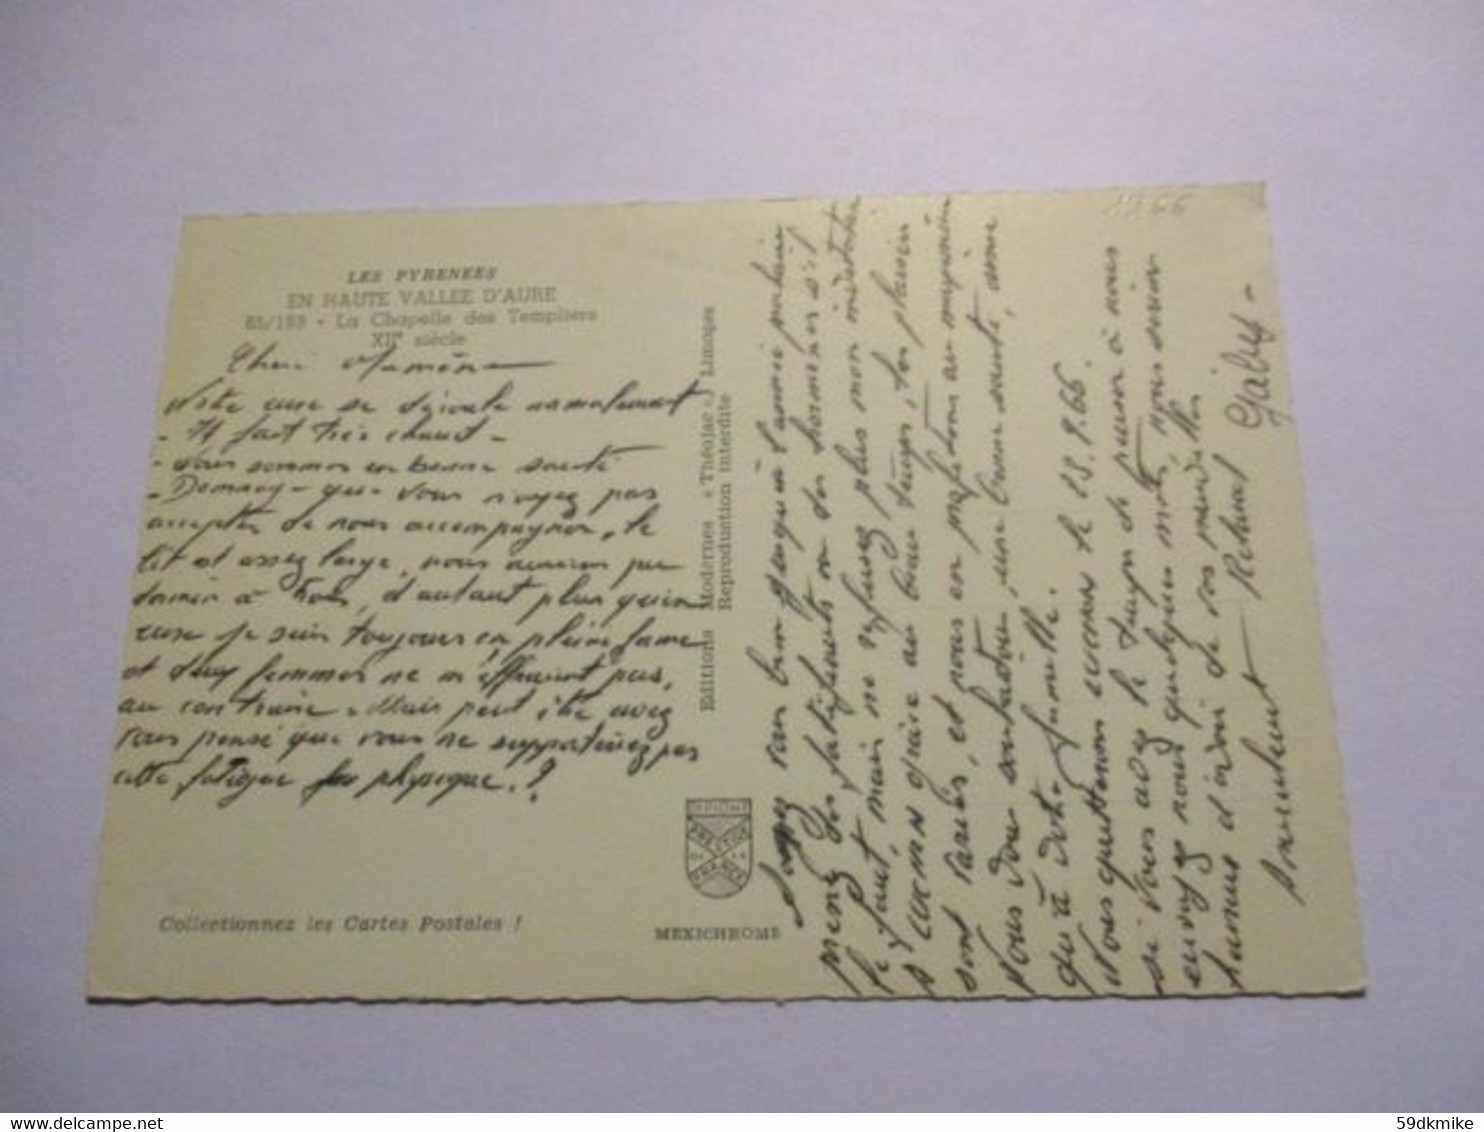 LES PYRENEES
EN HAUTE VALLEE D'AURE
65/193 - La Chapelle des Templiers
XIIe siècle
Cure se déroule normalement
- Il fait très chaud -
- Nous sommes en bonne santé
- Dommage que vous n'ayez pas
accepter de nous accompagner, le
lit est assez large, nous aurions pu
dormir à trois, d'autant plus qu'en
cure je suis toujours en pleine forme
et deux femmes ne m'effraient pas,
au contraire. Mais peut être avez
vous pensé que vous ne supporteriez pas
cette fatigue physique. ?
Collectionnez les Cartes Postales !
Editions Modernes « Théojac » Limoges
Reproduction interdite
MEXICHROME
1966
Soyez sans jusqu'à l'année prochaine
prenez des fortifiants ou des hormones s'il
le faut, mais ne refusez plus mon invitation
grâce au beau temps, les
sont, et nous en profitons au maximum
Nous vous souhaitons une bonne santé, ainsi
qu'à votre famille.
Nous quitterons le 25.9.66.
Si vous avez le temps de penser à nous
envoyez nous quelques mots, nous serions
heureux d'avoir de vos nouvelles
Gaby -